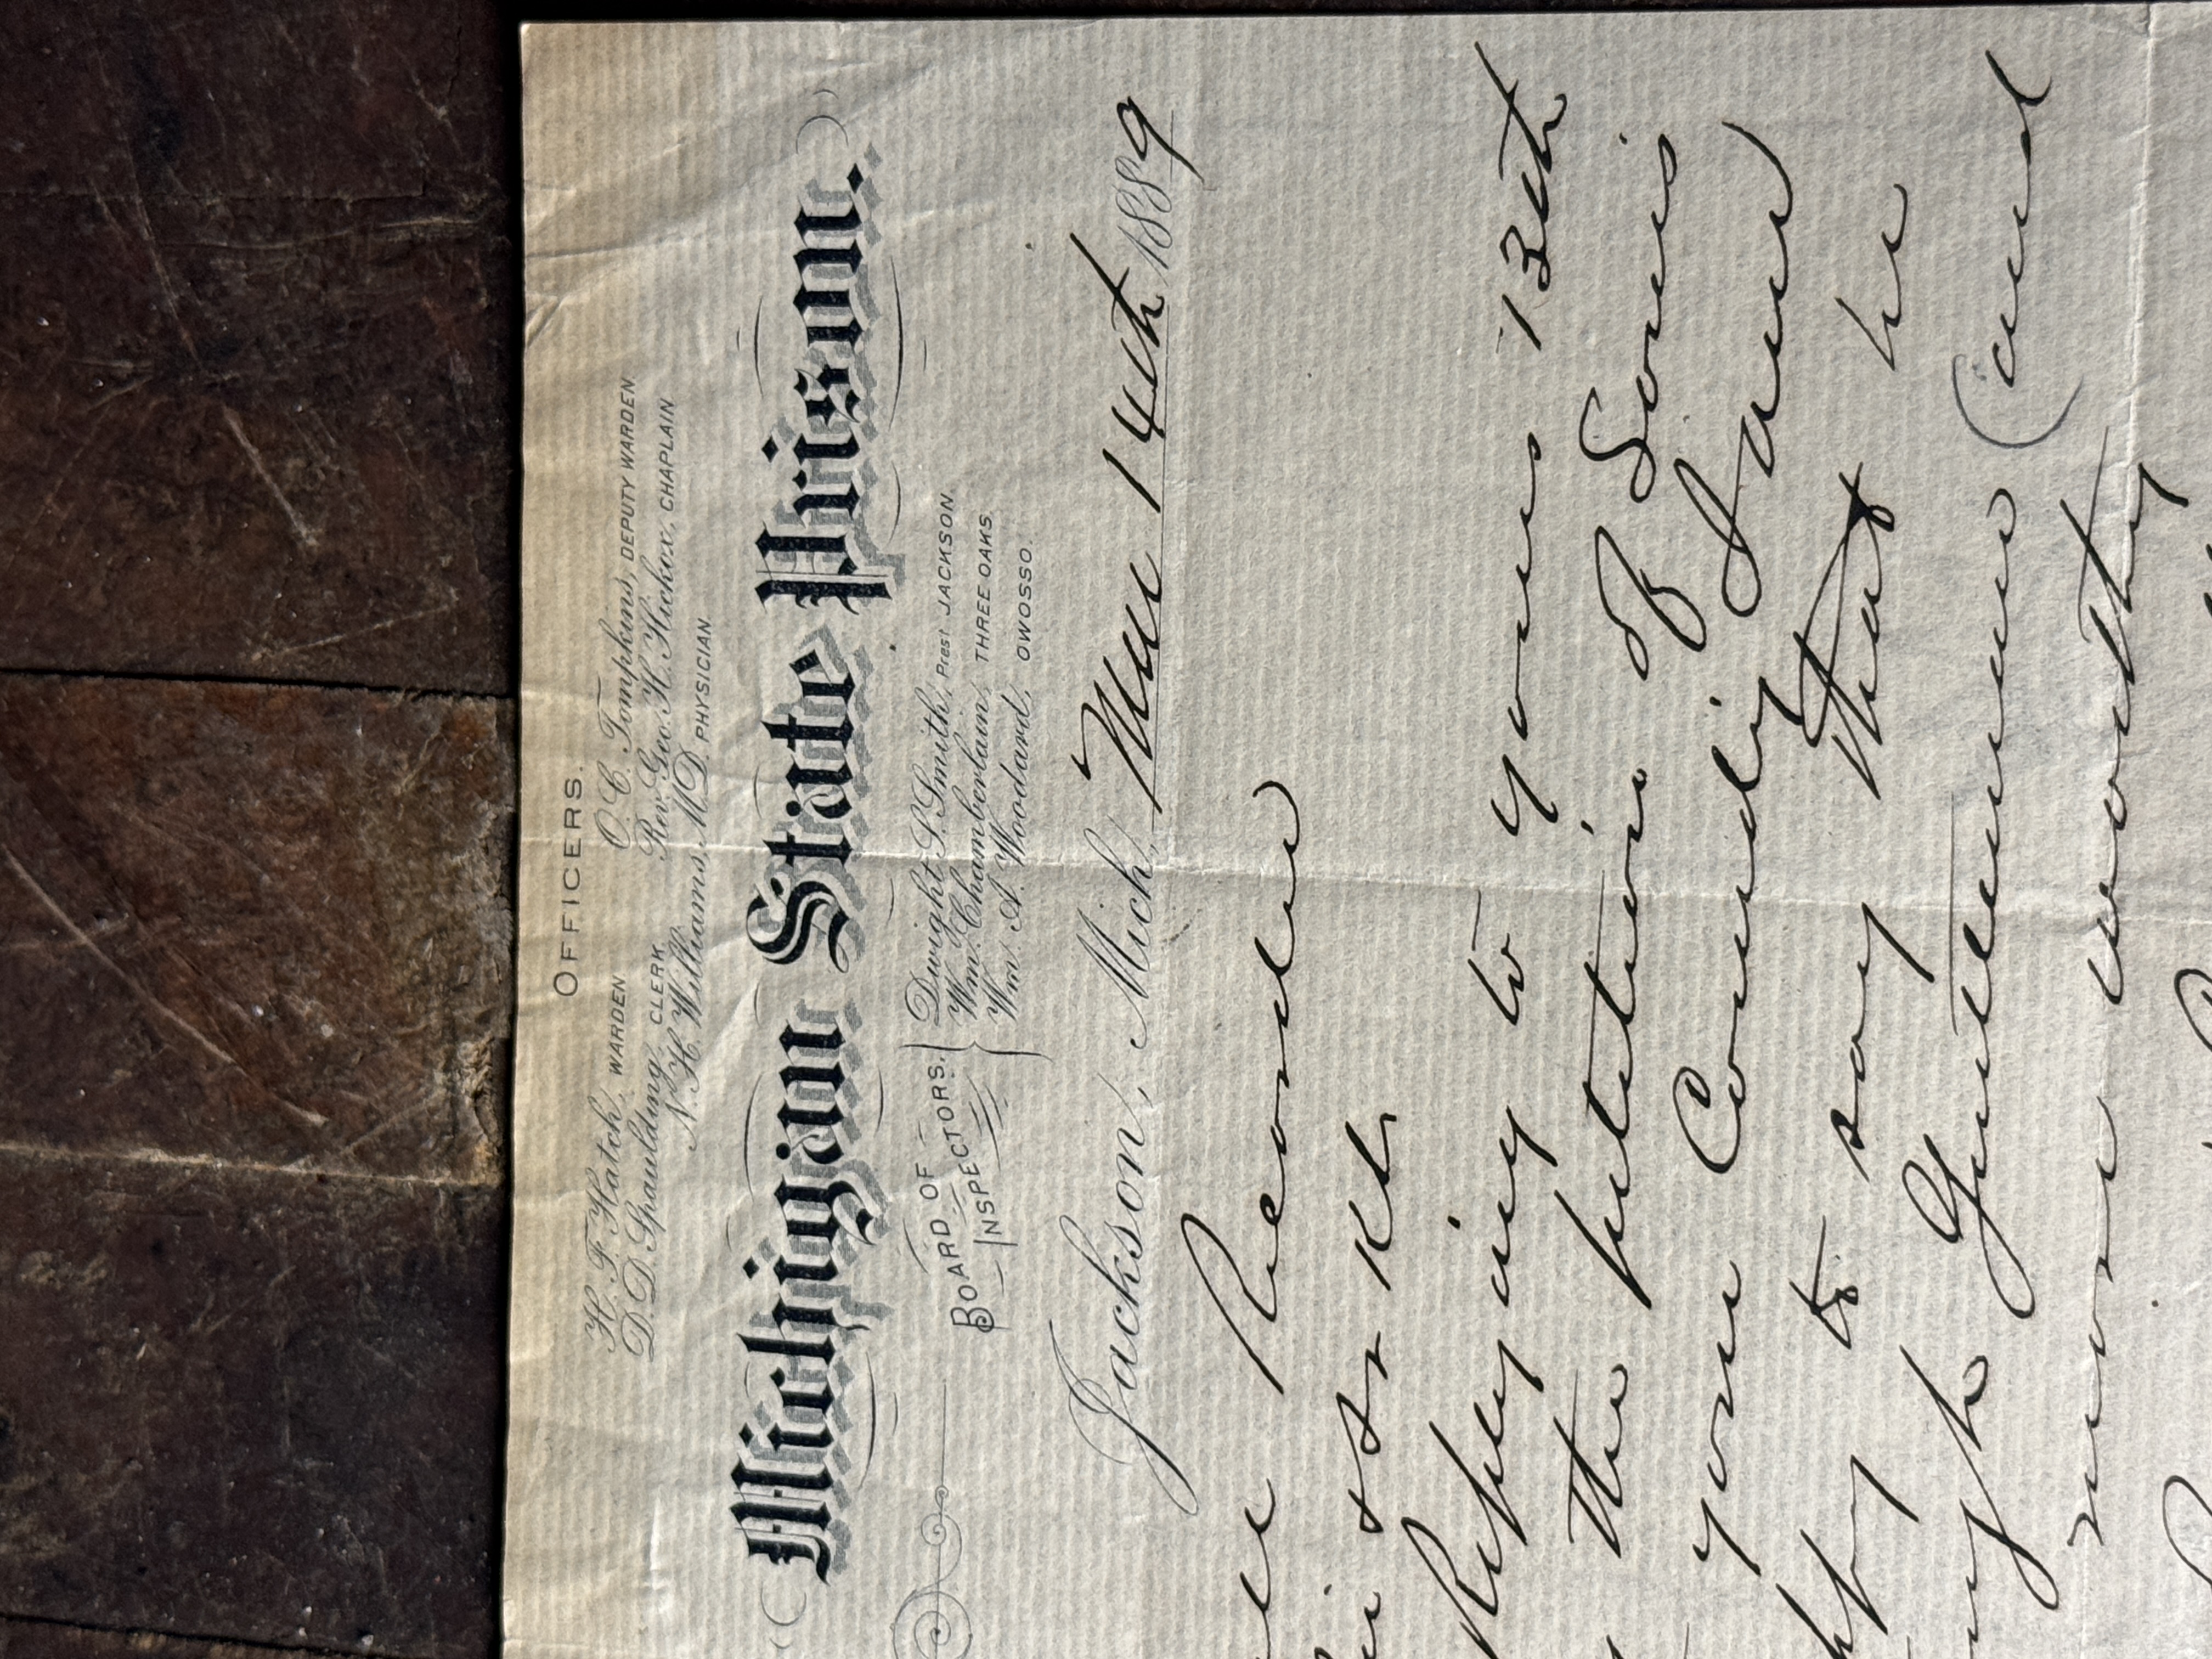 OFFICERS.
H. F. Hatch, WARDEN O. C. Tompkins, DEPUTY WARDEN.
D. D. Spaulding, CLERK Rev. Geo. H. Hickox, CHAPLAIN.
N. H. Williams, M.D. PHYSICIAN.
Michigan State Prison.
BOARD OF INSPECTORS.
Dwight S. Smith, Prest JACKSON.
Wm. Chamberlain, THREE OAKS.
Wm. A. Woodard, OWOSSO.
Jackson, Mich., 14th 1889
Recorder
Sir & Kt
Replying to yours 13th
the petition of
your
to say that he
Gentleman (and
more worthy